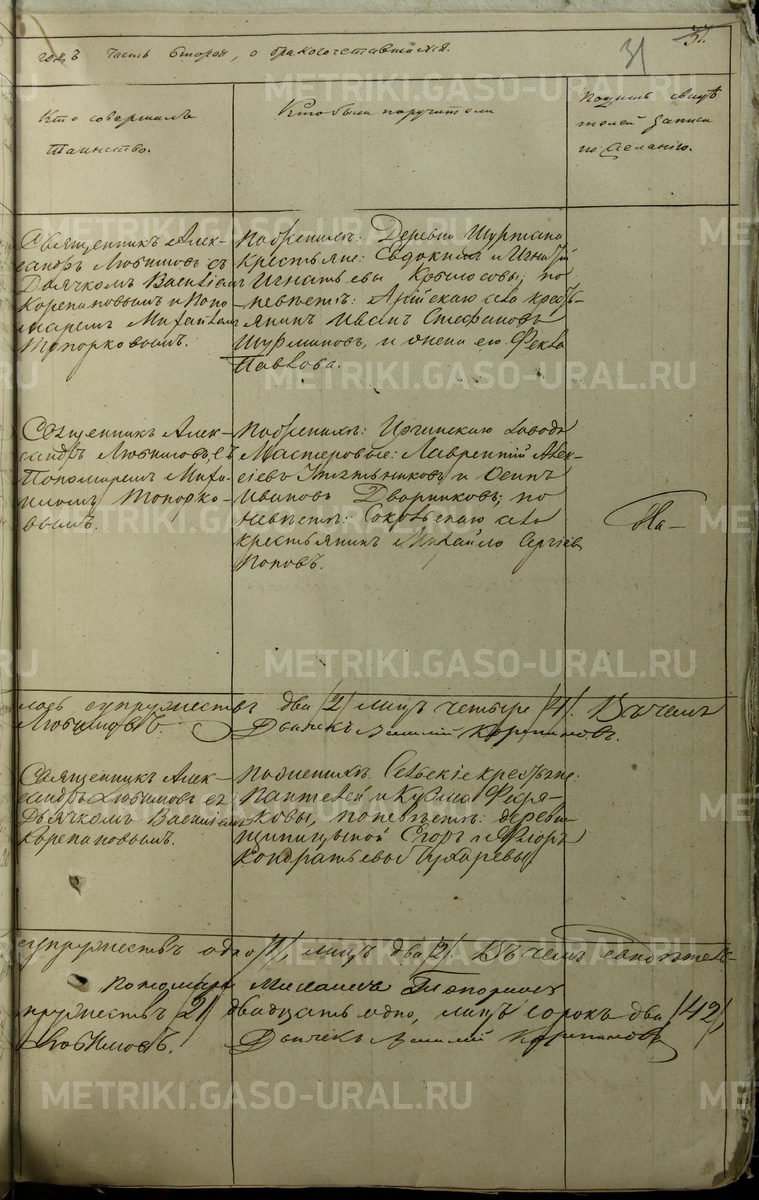 31
годъ часть вторая, о бракосочетавшихся.
Кто совершалъ
Таинство.
Кто были поручители
Подпись свидѣ
телей записи
по желанію.
Священникъ Алек-
сандръ Любимовъ съ
Дьячкомъ Василіем
Корепановымъ и Поно-
маремъ Михаиломъ
Топорковымъ.
По женихѣ: Деревни Шуртана
Крестьяне: Евдокимъ и Игнатій
Игнатьевы Крыласовы; по
невѣстѣ: Ачійскаго села кресть-
янинъ Иванъ Стефановъ
и жена его Фекла
Павлова.
Священникъ Алек-
сандръ Любимовъ, съ
Пономаремъ Миха-
иломъ Топорко-
вымъ.
По женихѣ: Иргинскаго завода
Мастеровые: Лаврентій Алек-
сіевъ и Осипъ
Ивановъ Дворниковъ; по
невѣстѣ: села
крестьянинъ Михайло Сергіев
Поповъ.
На-
супружествъ два /2/ лицъ четыре /4/. Въ чемъ
Любимовъ. Дьячекъ Василій Корепановъ.
Священникъ Алек-
сандръ Любимовъ съ
Дьячкомъ Василіем
Корепановымъ.
По женихѣ: Сельскіе крестьяне:
Пантелей и Кузма
по невѣстѣ: деревни
Егоръ и Флоръ
Кондратьевы
супружествъ одно /1/, лицъ два /2/. Въ чемъ
Пономарь Михаилъ Топорковъ
/21/ двадцать одно, лицъ сорокъ два /42/,
Любимовъ. Дьячекъ Василій Корепановъ
METRIKI.GASO-URAL.RU